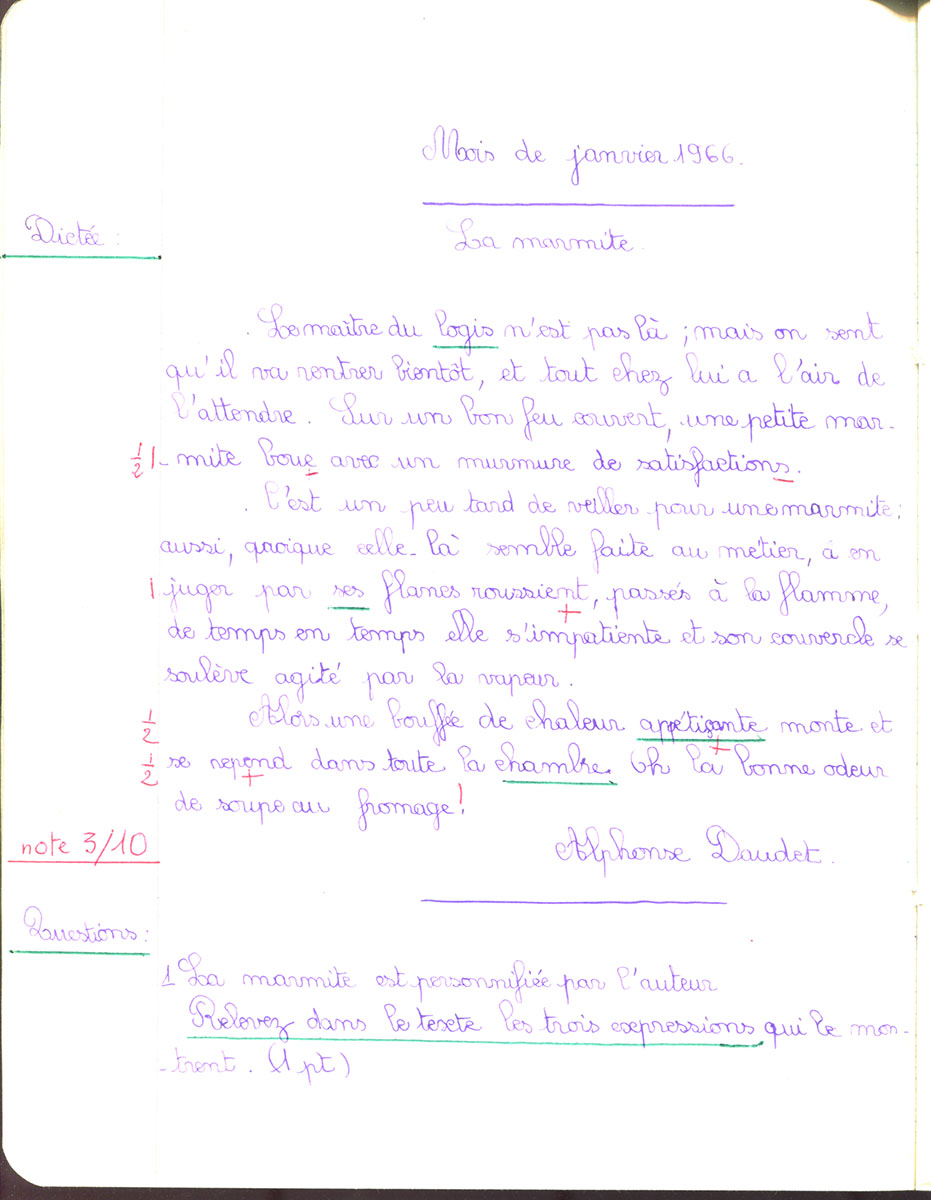 Mois de janvier 1966.
Dictée :
La marmite.
Le maître du logis n'est pas là ; mais on sent
qu'il va rentrer bientôt, et tout chez lui a l'air de
l'attendre. Sur un bon feu couvert, une petite mar-
½ 1 - mite boue avec un murmure de satisfactions.
C'est un peu tard de veiller pour une marmite ;
aussi, quoique celle-là semble faite au métier, à en
1 juger par ses flancs roussient, passés à la flamme,
de temps en temps elle s'impatiente et son couvercle se
soulève agité par la vapeur.
½ Alors une bouffée de chaleur appétiçante monte et
½ se repend dans toute la chambre. Oh la bonne odeur
de soupe au fromage !
note 3/10
Alphonse Daudet.
Questions :
1 La marmite est personnifiée par l'auteur
Relevez dans le texte les trois expressions qui le mon-
-trent. (1 pt)